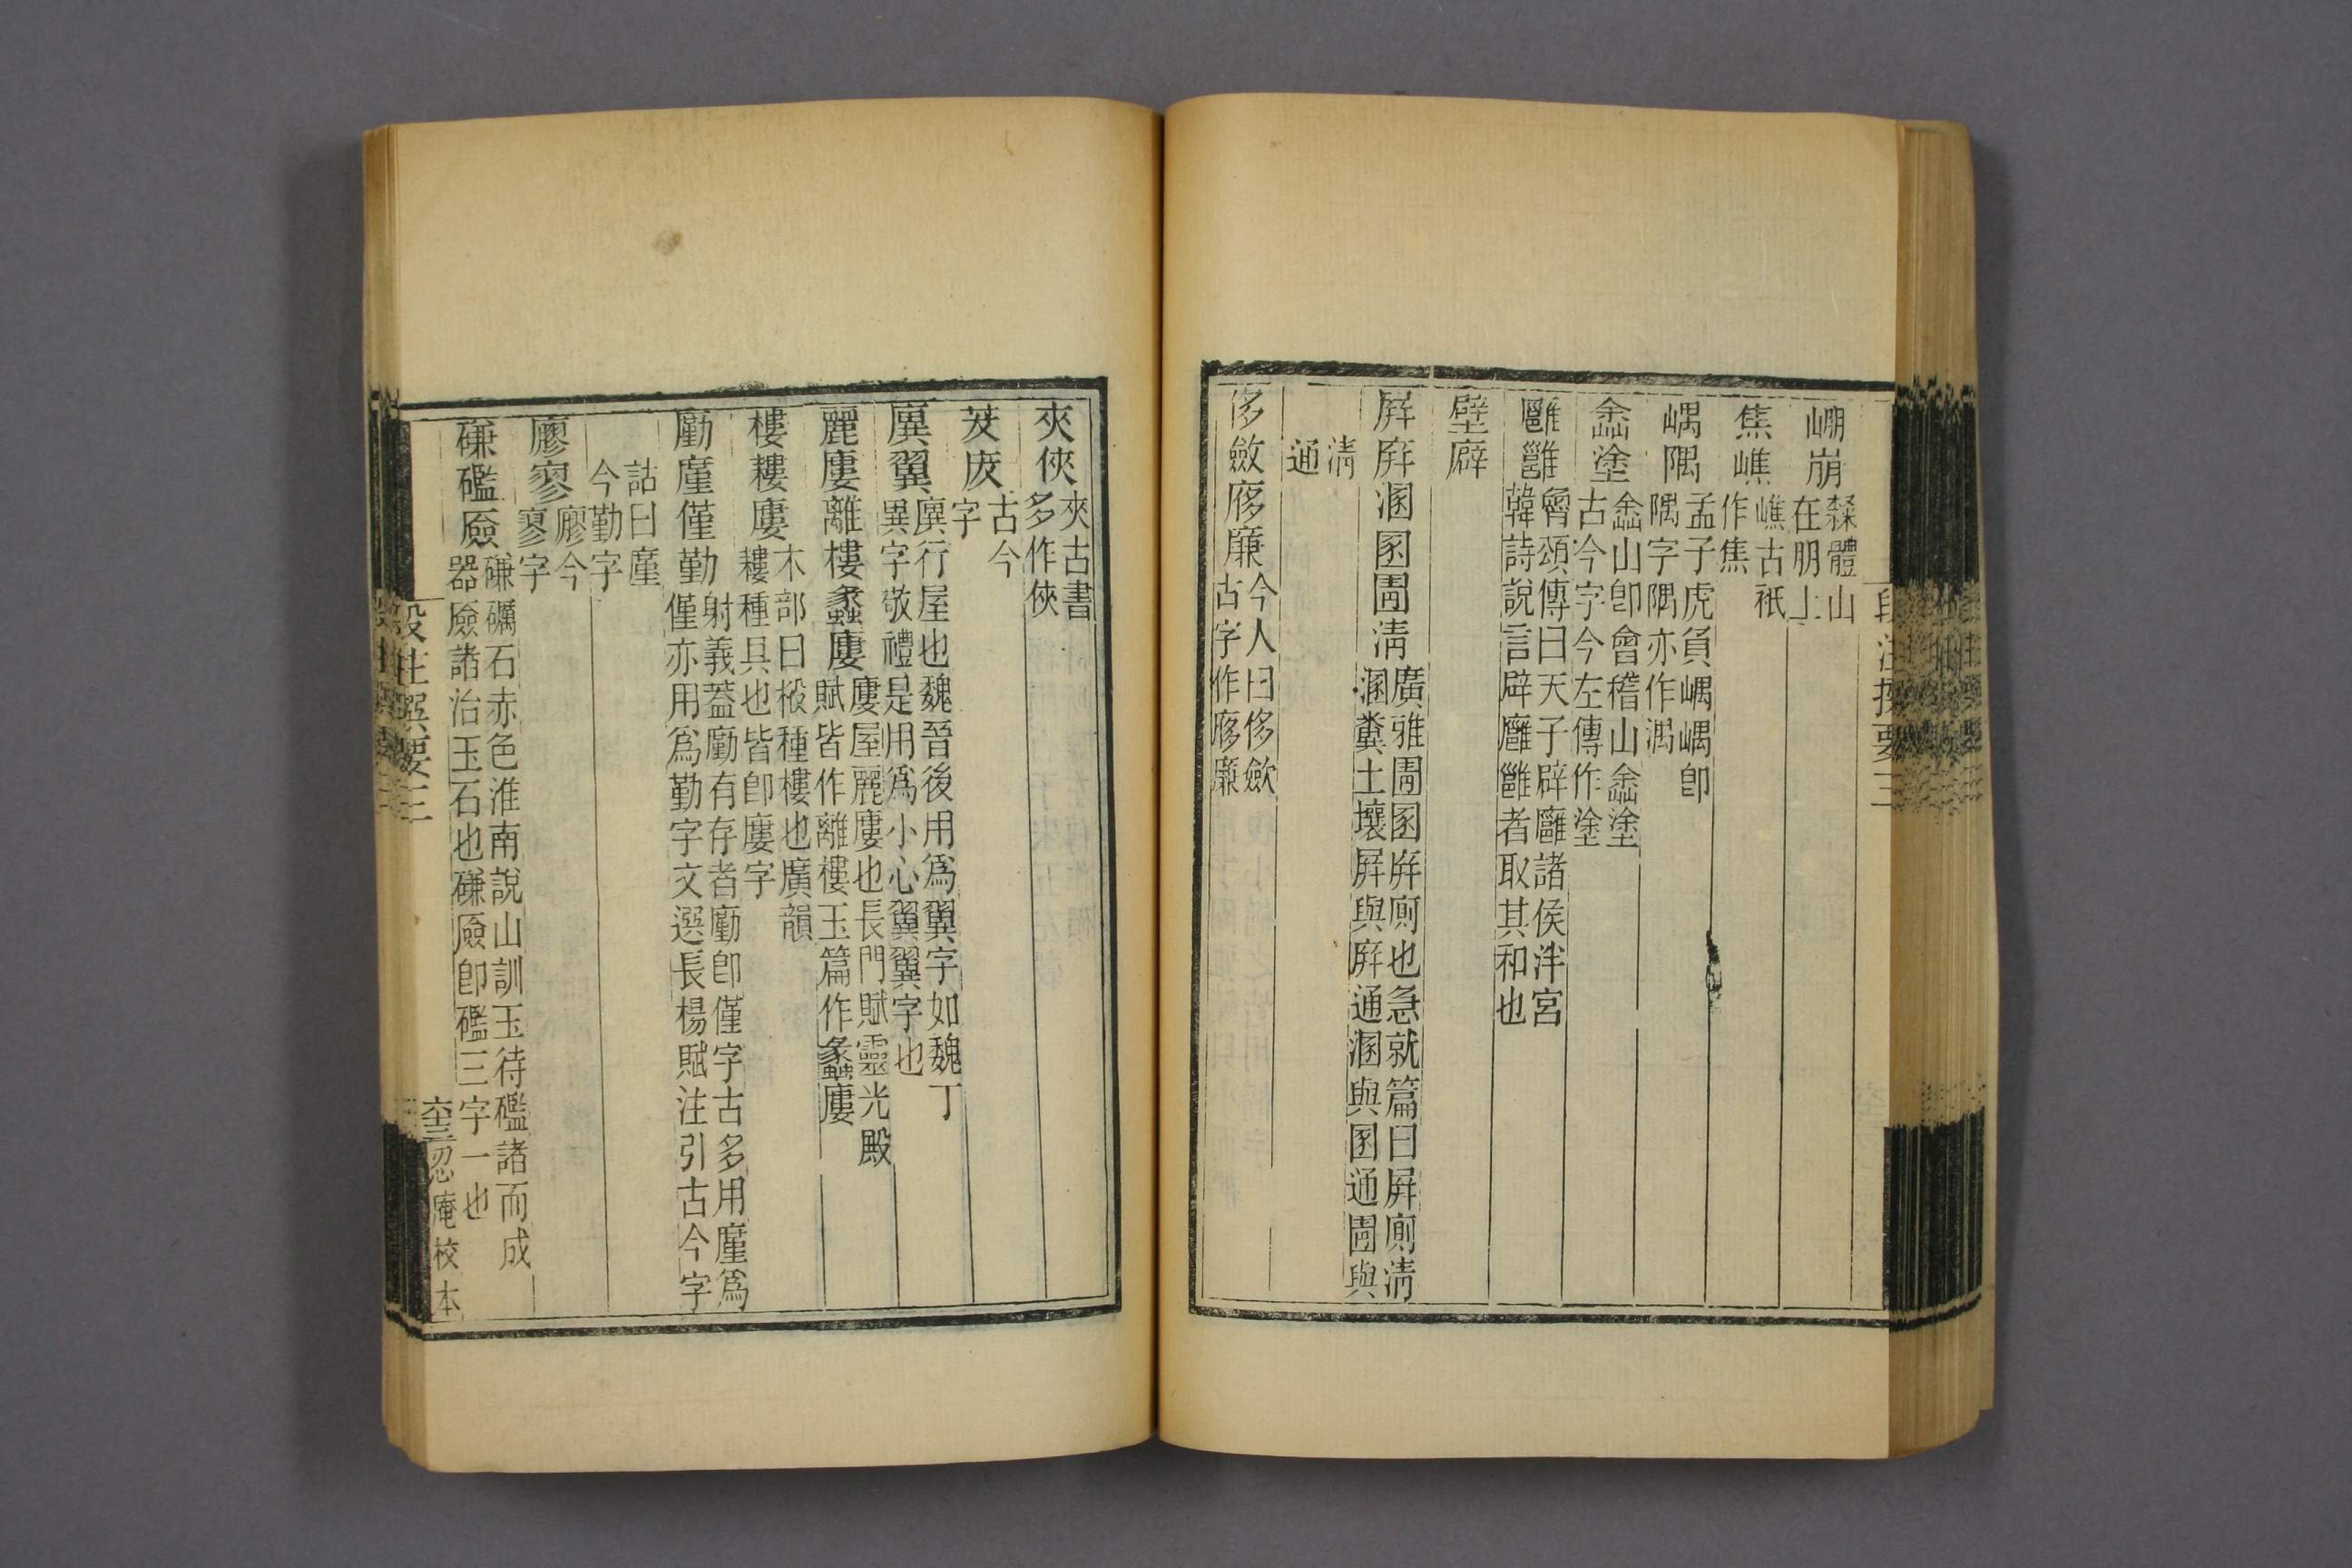 𡹔崩隸體山在朋上
焦嶕嶕古衹作焦
嵎隅孟子虎負嵎嵎卽隅字隅亦作湡
嵞塗嵞山卽會稽山嵞塗古今字今左傳作塗
廱雝魯頌傳曰天子辟廱諸侯泮宮韓詩說言辟廱雝者取其和也
壁廦
屛庰溷圂圊清廣雅圊圂庰廁也急就篇曰屛廁清溷糞土壤屛與庰通溷與圂通圊與
清通
侈斂廖廉今人曰侈斂古字作廖廉
段注撰要三
夾俠夾古書多作俠
茇庡古今字
廙翼廙行屋也魏晉後用爲翼字如魏丁廙字敬禮是用爲小心翼翼字也
麗廔離樓蠡廔廔屋麗廔也長門賦靈光殿賦皆作離樓玉篇作蠡廔
樓耬廔木部曰椴種樓也廣韻耬種具也皆卽廔字
勮廑僅勤射義蓋勮有存者勮卽僅字古多用廑爲僅亦用爲勤字文選長楊賦注引古今字
詁曰廑今勤字
廫寥廫今寥字
磏礛厱磏礪石赤色淮南說山訓玉待礛諸而成器厱諸治玉石也磏厱卽礛三字一也
段注撰要三
六十三
忍庵校本